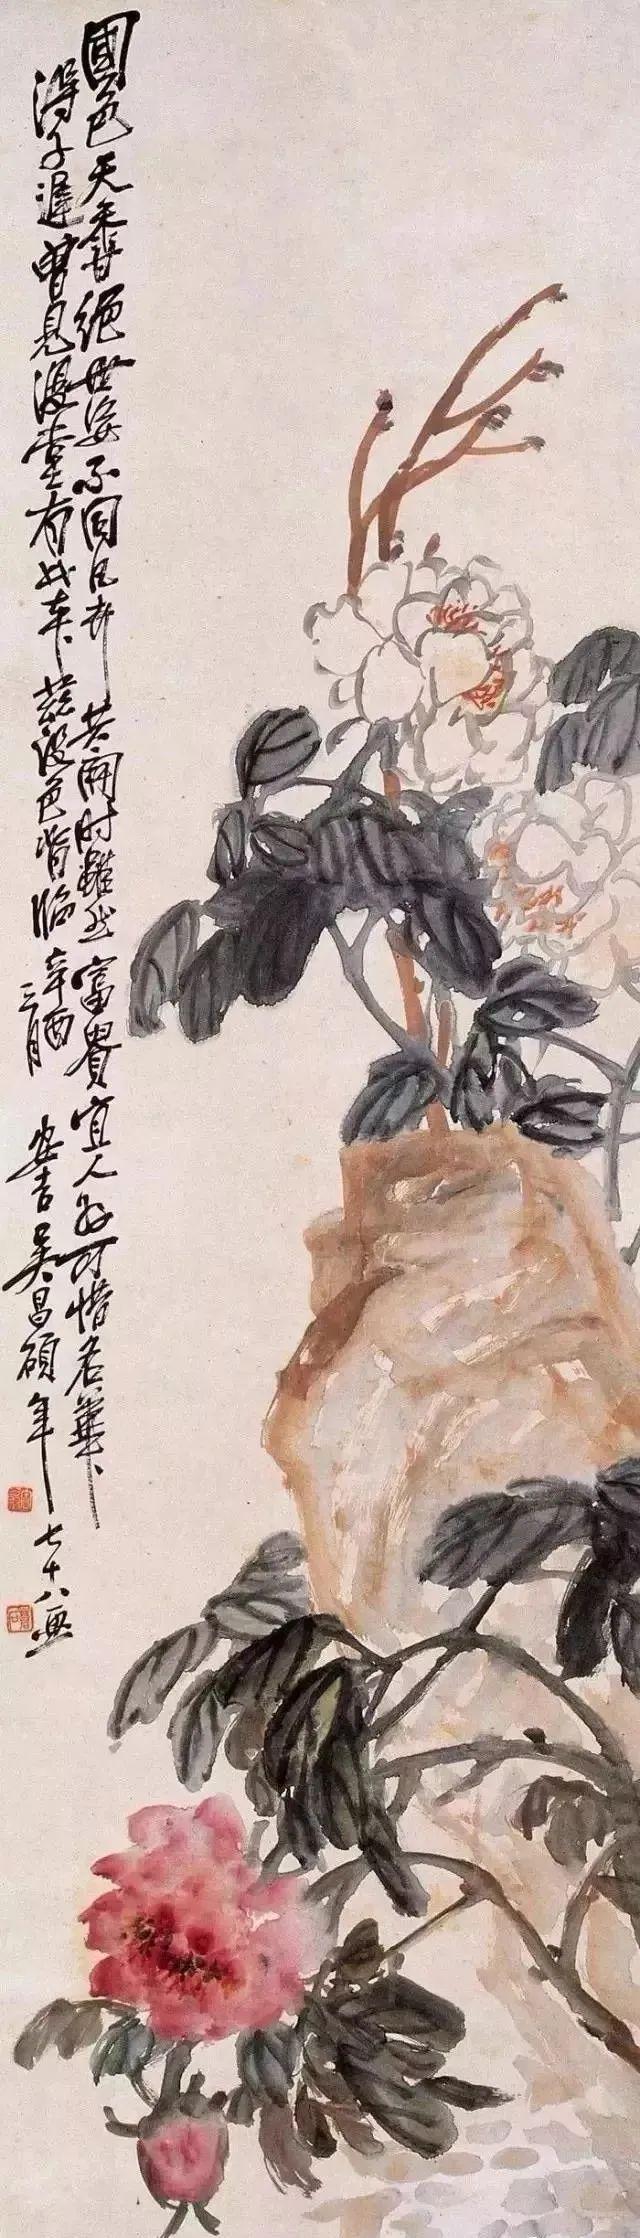 國色天香絕世姿不同凡卉共開時雖然富貴宜人好可惜名華
得子遲曾見漫堂有此本茲設色背臨辛酉
三月安吉吳昌碩年七十八畫